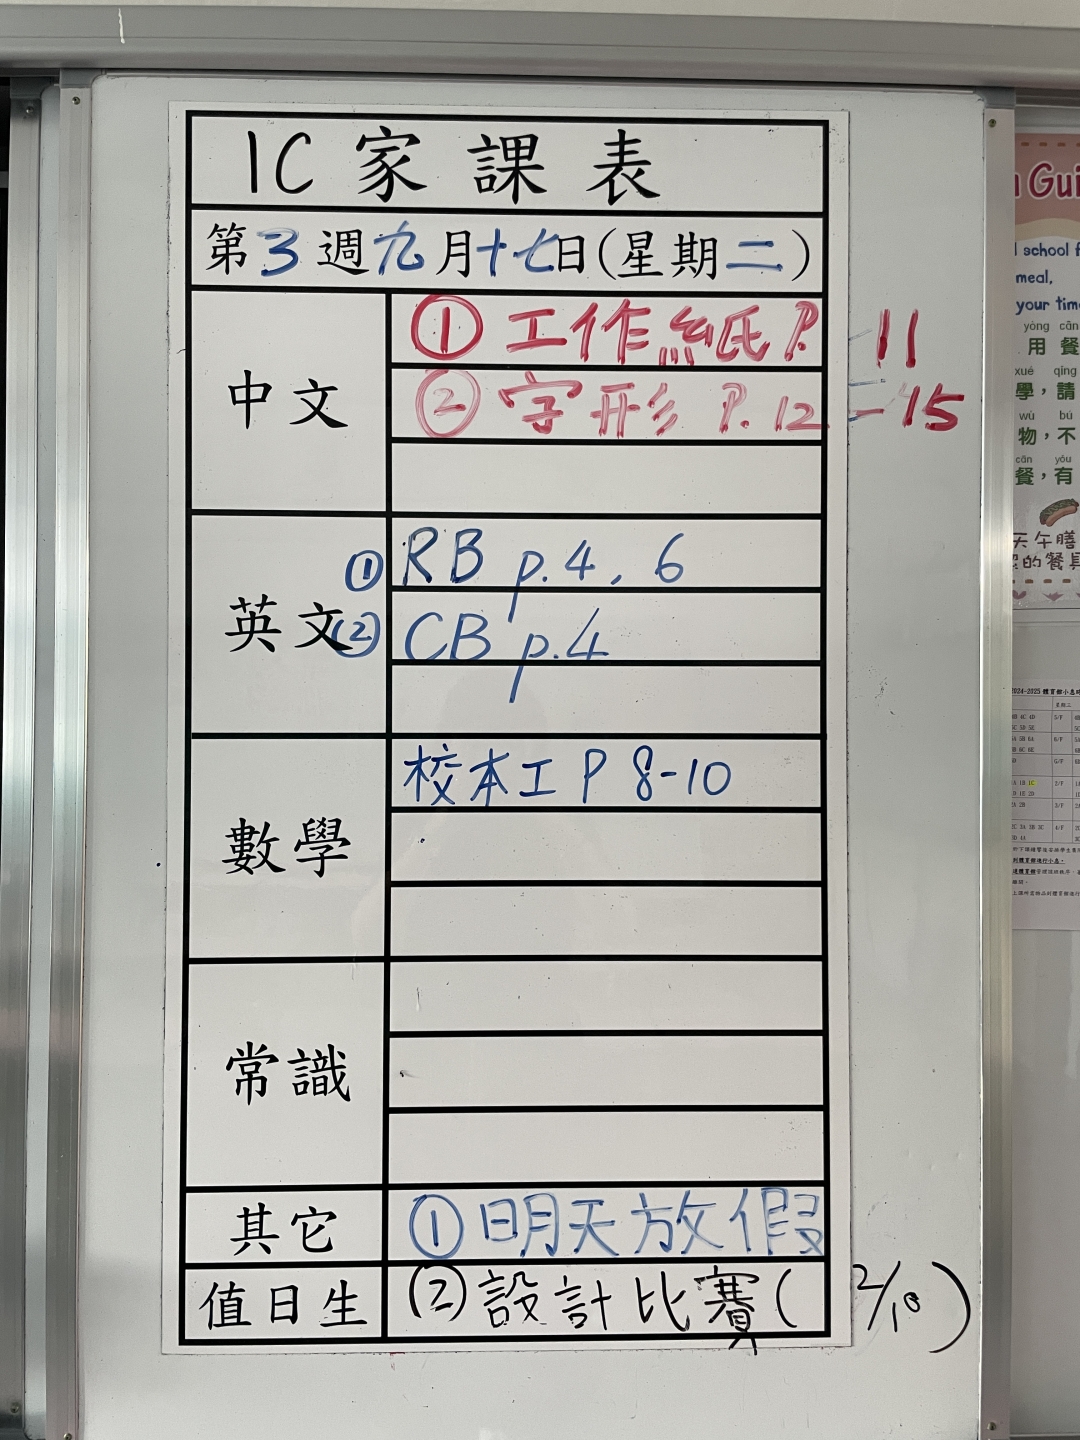 1C 家課表
第3週九月十七日(星期二)
中文
① 工作紙 P. 11
② 字形 P.12-15
英文
① RB p.4, 6
② CB p.4
數學
校本工 P 8-10
常識
其它
① 明天放假
值日生
(2) 設計比賽 (2/10)
Gui
school f
meal,
your tim
yòng cān
用 餐
xué qǐng
學，請
wù bú
物，不
cān yǒu
餐，有
天午膳
的餐具
2024-2025